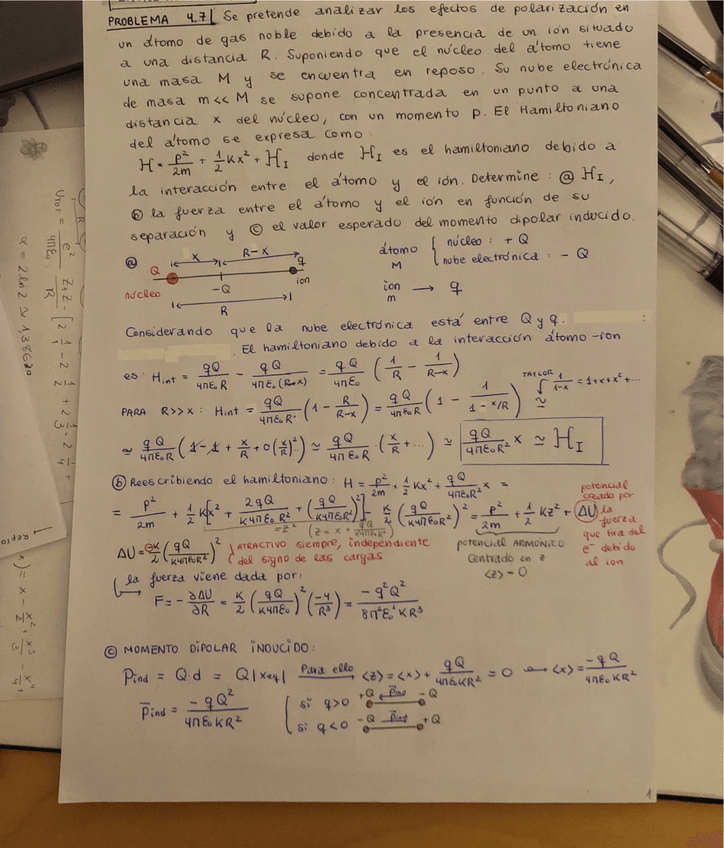 PROBLEMA 4.7 Se pretende analizar los efectos de polarización en
un átomo de gas noble debido a la presencia de un ion situado
a una distancia R. Suponiendo que el núcleo del átomo tiene
una masa M y se encuentra en reposo. Su nube electrónica
de masa m<< M se supone concentrada en un punto a una
distancia x del núcleo, con un momento p. El Hamiltoniano
del átomo se expresa como
H = p²/2m + 1/2 Kx² + H_I donde H_I es el hamiltoniano debido a
la interacción entre el átomo y el ión. Determine: ⓐ H_I,
ⓑ la fuerza entre el átomo y el ion en función de su
separación y ⓒ el valor esperado del momento dipolar inducido.
ⓐ Q x R-x q
núcleo -Q ion
R
átomo M { núcleo: + Q
nube electrónica: - Q
ion m → q
Considerando que la nube electrónica está entre Q y q.
El hamiltoniano debido a la interacción átomo-ion
es: Hint = qQ/4πε₀R - qQ/4πε₀(R-x) = qQ/4πε₀ (1/R - 1/R-x)
PARA R>>x: Hint = qQ/4πε₀R (1 - R/R-x) = qQ/4πε₀R (1 - 1/1-x/R) ≃ TAYLOR 1/1-x = 1+x+x²+...
≃ qQ/4πε₀R (1-1 + x/R + o(x/R)²) ≃ qQ/4πε₀R · (x/R + ...) ≃ qQ/4πε₀R² x ≃ H_I
ⓑ Reescribiendo el hamiltoniano: H = p²/2m + 1/2 Kx² + qQ/4πε₀R² x =
= p²/2m + 1/2 K[x² + 2qQ/K4πε₀R² + (qQ/K4πε₀R²)²] - K/2 (qQ/K4πε₀R²)² = p²/2m + 1/2 Kz² + ΔU
= z² (z = x + qQ/K4πε₀R²)
potencial creado por la fuerza que tira del e⁻ debido al ion
potencial ARMÓNICO
centrado en z
<z> = 0
ΔU = -K/2 (qQ/K4πε₀R²)² ATRACTIVO siempre, independiente
del signo de las cargas
la fuerza viene dada por:
F = - ∂ΔU/∂R = K/2 (qQ/K4πε₀)² (-4/R⁵) = -q²Q²/8π²ε₀²KR⁵
ⓒ MOMENTO DIPOLAR INDUCIDO:
Pind = Q·d = Q|xeq| Para ello <z> = <x> + qQ/4πε₀KR² = 0 → <x> = -qQ/4πε₀KR²
Pind = -qQ²/4πε₀KR² { si q>0 +Q Pind -Q
si q<0 -Q Pind +Q
1
α = 2 ln 2 ≃ 1,38620